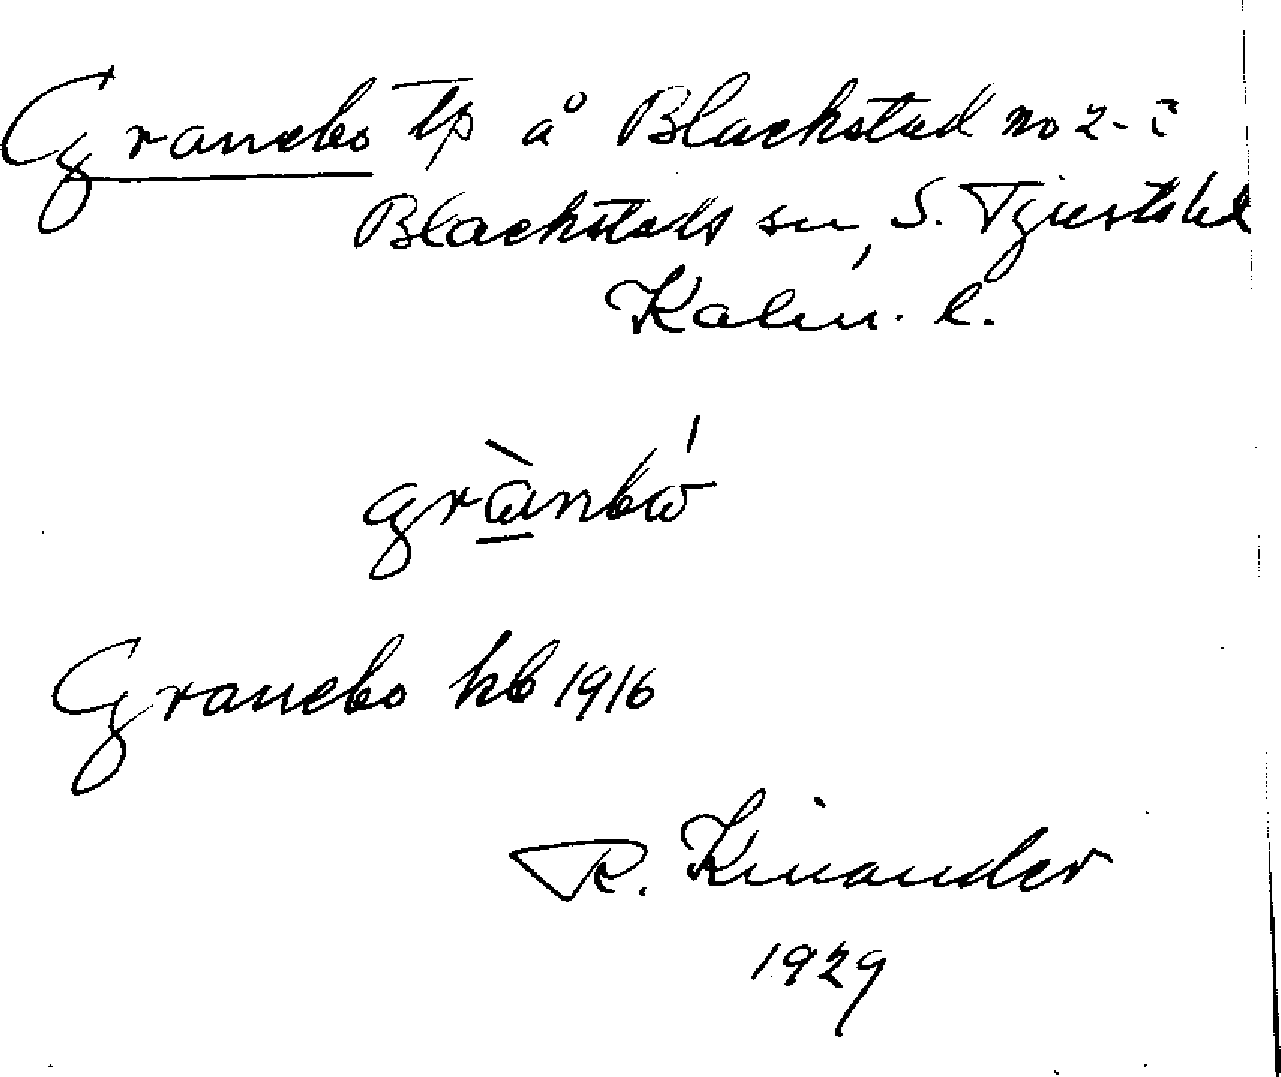 Granebo tp å Blackstad no 2-
Blackstads sn, S. Tjusts hd
Kalm. l.
grànbω
Granebo kb 1916
R. Kinander
1929